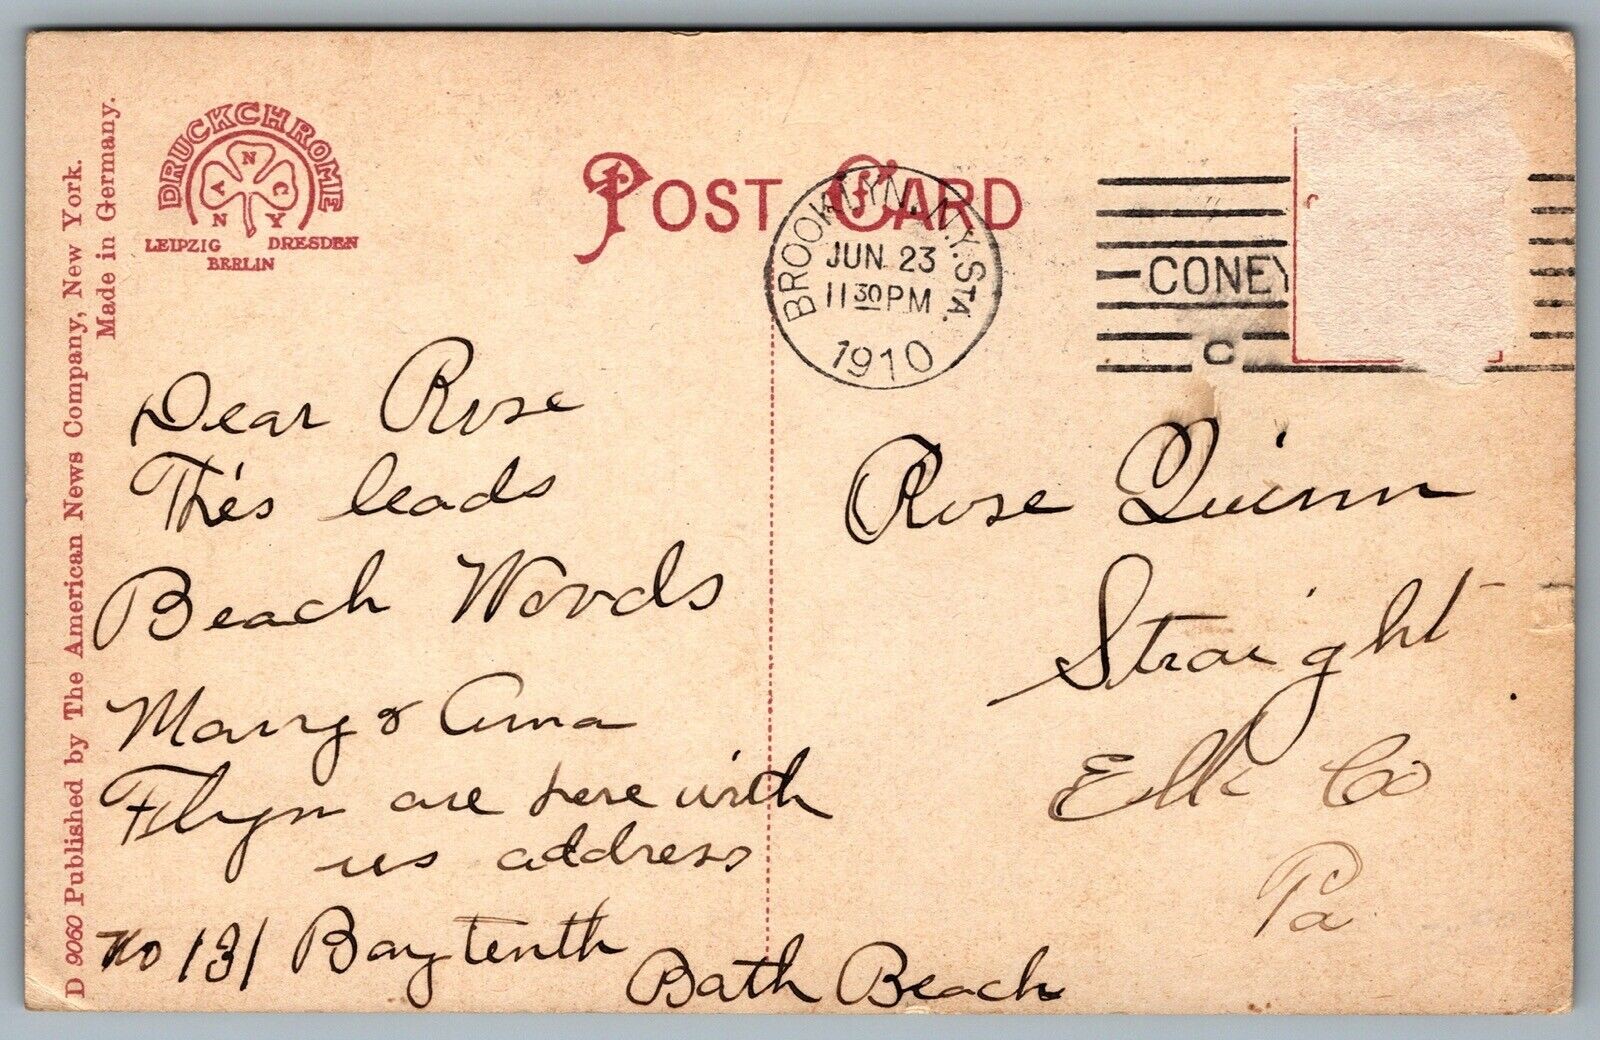 D 9060 Published by The American News Company, New York.
Made in Germany.
DRUCKCHROME
N
A C
N Y
LEIPZIG DRESDEN
BERLIN
POST CARD
BROOKLYN, N.Y. STA.
JUN 23
11 30 PM
1910
CONEY
C
Dear Rose
This leads
Beach Woods
Marry & Anna
Flynn are here with
us address
No 131 Bay tenth
Bath Beach
Rose Quinn
Straight
Elk Co
Pa